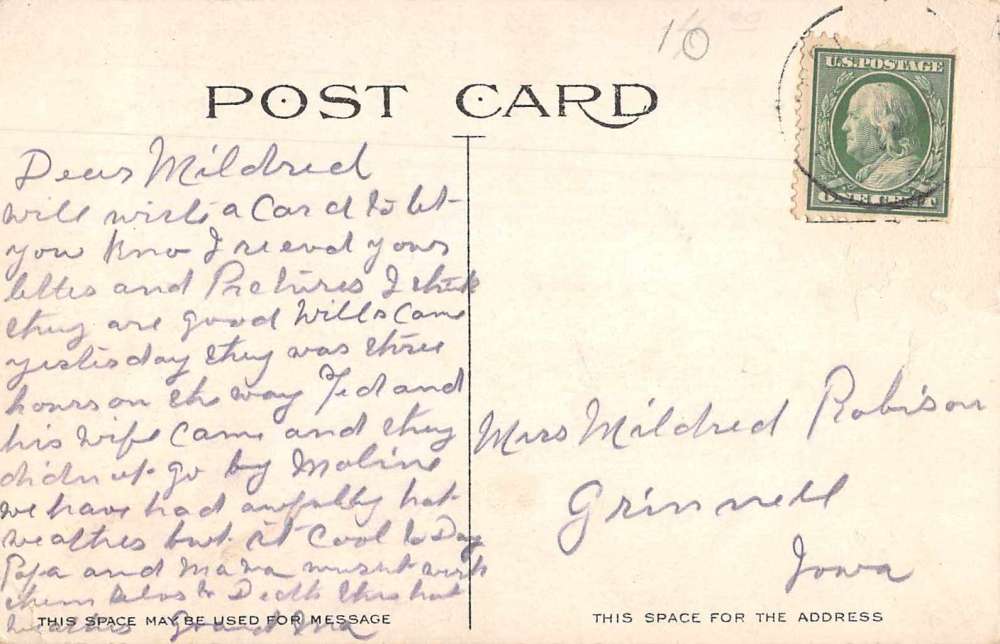 10
U.S. POSTAGE
ONE CENT
POST CARD
Dear Mildred
will write a Card to let
you kno I recevd your
letter and Pictures I think
they are good Wills Came
yesterday they was three
hours on the way Ted and
his Wife Came and they
didn't go by Moline
we have had awfully hot
weather but it Cool to Day
Papa and Mama musnt work
them selvs to Deth this hot
weather Grand Ma
THIS SPACE MAY BE USED FOR MESSAGE
Miss Mildred Robison
Grinnell
Iowa
THIS SPACE FOR THE ADDRESS